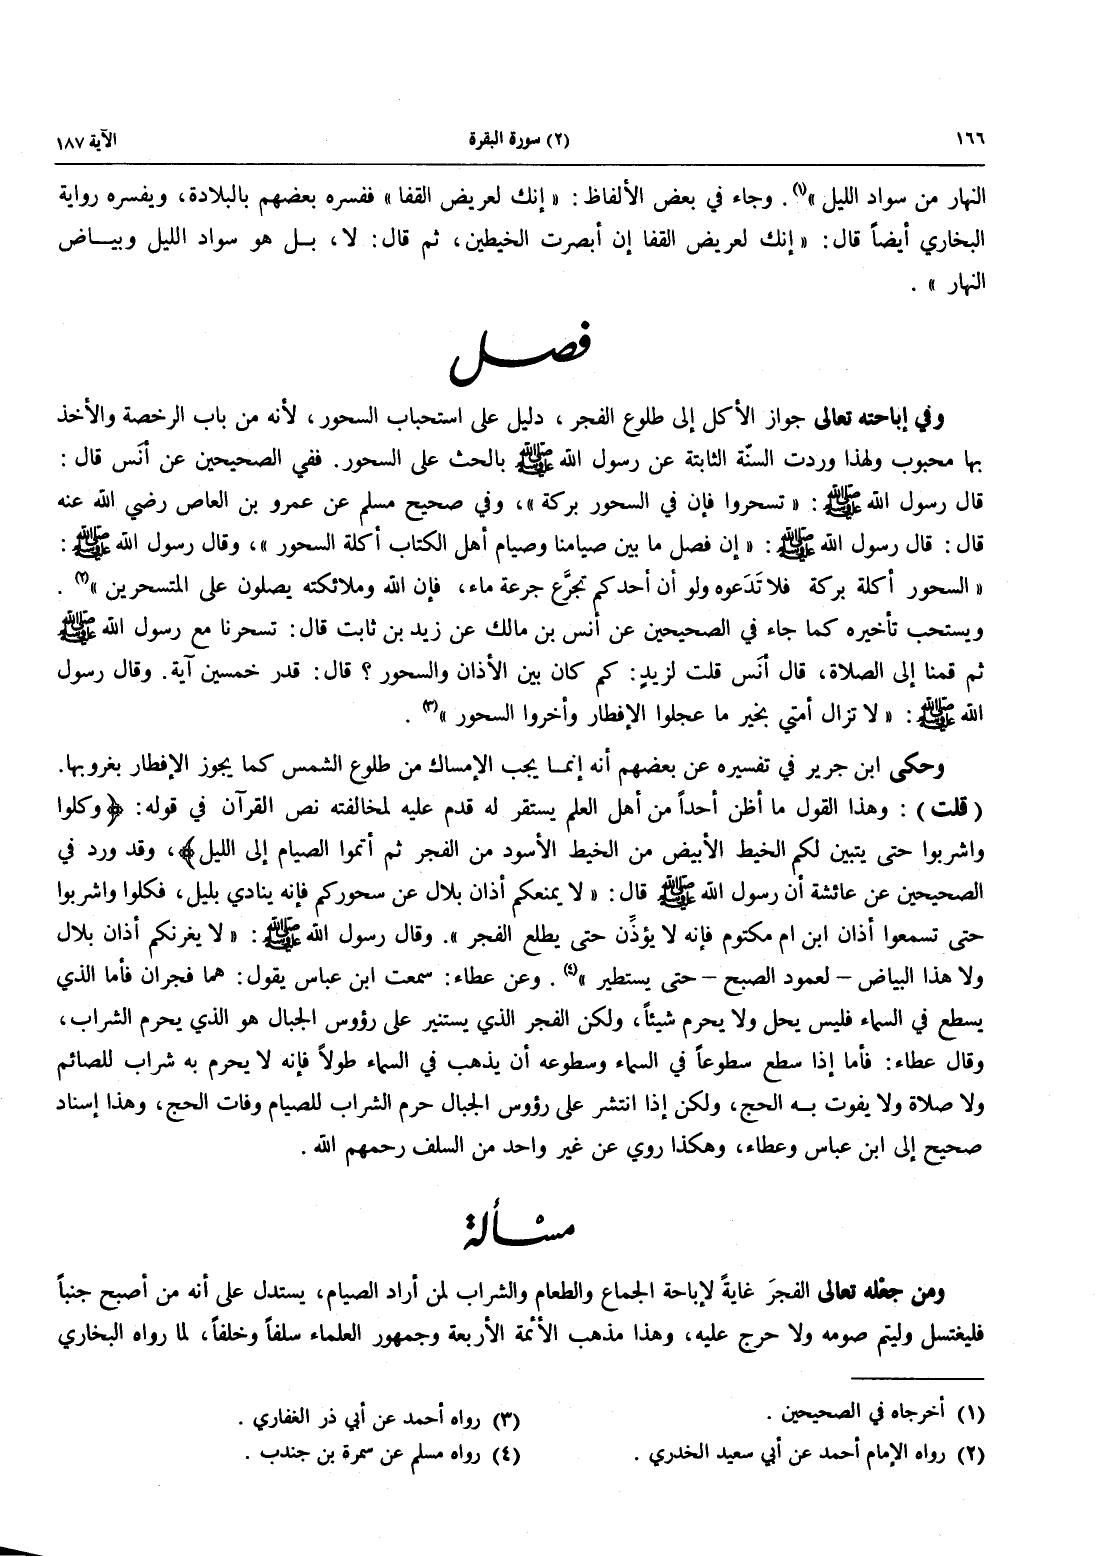 ١٦٦ (٢) سورة البقرة الآية ١٨٧
النهار من سواد الليل »(١). وجاء في بعض الألفاظ : « إنك لعريض القفا » ففسره بعضهم بالبلادة، ويفسره رواية
البخاري أيضاً قال : « إنك لعريض القفا إن أبصرت الخيطين، ثم قال : لا، بـل هو سواد الليل وبيـاض
النهار » .
فصل
وفي إباحته تعالى جواز الأكل إلى طلوع الفجر ، دليل على استحباب السحور ، لأنه من باب الرخصة والأخذ
بها محبوب ولهذا وردت السنّة الثابتة عن رسول الله ﷺ بالحث على السحور. ففي الصحيحين عن أنَس قال :
قال رسول الله ﷺ : « تسحروا فإن في السحور بركة »، وفي صحيح مسلم عن عمرو بن العاص رضي الله عنه
قال : قال رسول الله ﷺ : « إن فصل ما بين صيامنا وصيام أهل الكتاب أكلة السحور »، وقال رسول الله ﷺ :
« السحور أكلة بركة فلا تَدَعوه ولو أن أحدكم تجرَّع جرعة ماء، فإن الله وملائكته يصلون على المتسحرين »(٢) .
ويستحب تأخيره كما جاء في الصحيحين عن أنس بن مالك عن زيد بن ثابت قال : تسحرنا مع رسول الله ﷺ
ثم قمنا إلى الصلاة، قال أنَس قلت لزيدٍ : كم كان بين الأذان والسحور ؟ قال : قدر خمسين آية. وقال رسول
الله ﷺ : « لا تزال أمتي بخير ما عجلوا الإفطار وأخروا السحور »(٣) .
وحكى ابن جرير في تفسيره عن بعضهم أنه إنمـا يجب الإمساك من طلوع الشمس كما يجوز الإفطار بغروبها.
( قلت ) : وهذا القول ما أظن أحداً من أهل العلم يستقر له قدم عليه لمخالفته نص القرآن في قوله : ﴿ وكلوا
واشربوا حتى يتبين لكم الخيط الأبيض من الخيط الأسود من الفجر ثم أتموا الصيام إلى الليل﴾، وقد ورد في
الصحيحين عن عائشة أن رسول الله ﷺ قال : « لا يمنعكم أذان بلال عن سحوركم فإنه ينادي بليل، فكلوا واشربوا
حتى تسمعوا أذان ابن ام مكتوم فإنه لا يؤذِّن حتى يطلع الفجر ». وقال رسول الله ﷺ : « لا يغرنكم أذان بلال
ولا هذا البياض – لعمود الصبح – حتى يستطير »(٤) . وعن عطاء : سمعت ابن عباس يقول : هما فجران فأما الذي
يسطع في السماء فليس يحل ولا يحرم شيئاً، ولكن الفجر الذي يستنير على رؤوس الجبال هو الذي يحرم الشراب،
وقال عطاء : فأما إذا سطع سطوعاً في السماء وسطوعه أن يذهب في السماء طولاً فإنه لا يحرم به شراب للصائم
ولا صلاة ولا يفوت بـه الحج، ولكن إذا انتشر على رؤوس الجبال حرم الشراب للصيام وفات الحج، وهذا إسناد
صحيح إلى ابن عباس وعطاء، وهكذا روي عن غير واحد من السلف رحمهم الله .
مسألة
ومن جعْله تعالى الفجرَ غايةً لإباحة الجماع والطعام والشراب لمن أراد الصيام، يستدل على أنه من أصبح جنباً
فليغتسل وليتم صومه ولا حرج عليه، وهذا مذهب الأئمة الأربعة وجمهور العلماء سلفاً وخلفاً، لما رواه البخاري
(١) أخرجاه في الصحيحين .
(٢) رواه الإمام أحمد عن أبي سعيد الخدري .
(٣) رواه أحمد عن أبي ذر الغفاري .
(٤) رواه مسلم عن سمرة بن جندب .